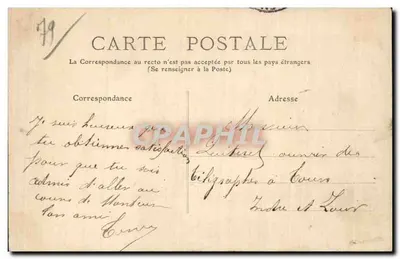 79
CARTE POSTALE
La Correspondance au recto n'est pas acceptée par tous les pays étrangers
(Se renseigner à la Poste.)
Correspondance
Adresse
Je suis heureux
tu obtiennes satisfaction
pour que tu sois
admis d'aller au
cours de Monsieur
ton ami
Monsieur
ouvrier des
Télégraphes à Tours
Indre et Loire
CPHPHIL.com